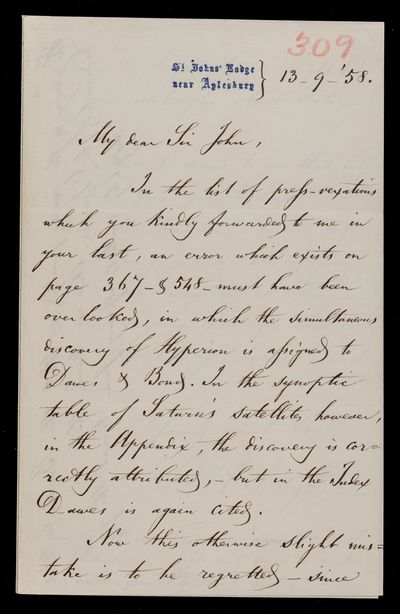 309
St Johns' Lodge
near Aylesbury } 13-9-'58.
My dear Sir John,
In the list of press-vexations
which you kindly forwarded to me in
your last, an error which exists on
page 367-§ 548- must have been
overlooked, in which the simultaneous
discovery of Hyperion is assigned to
Dawes & Bond. In the synoptic
table of Saturn's satellites, however,
in the Appendix, the discovery is cor=
rectly attributed, - but in the Index
Dawes is again cited.
Now this otherwise slight mis=
take is to be regretted - since